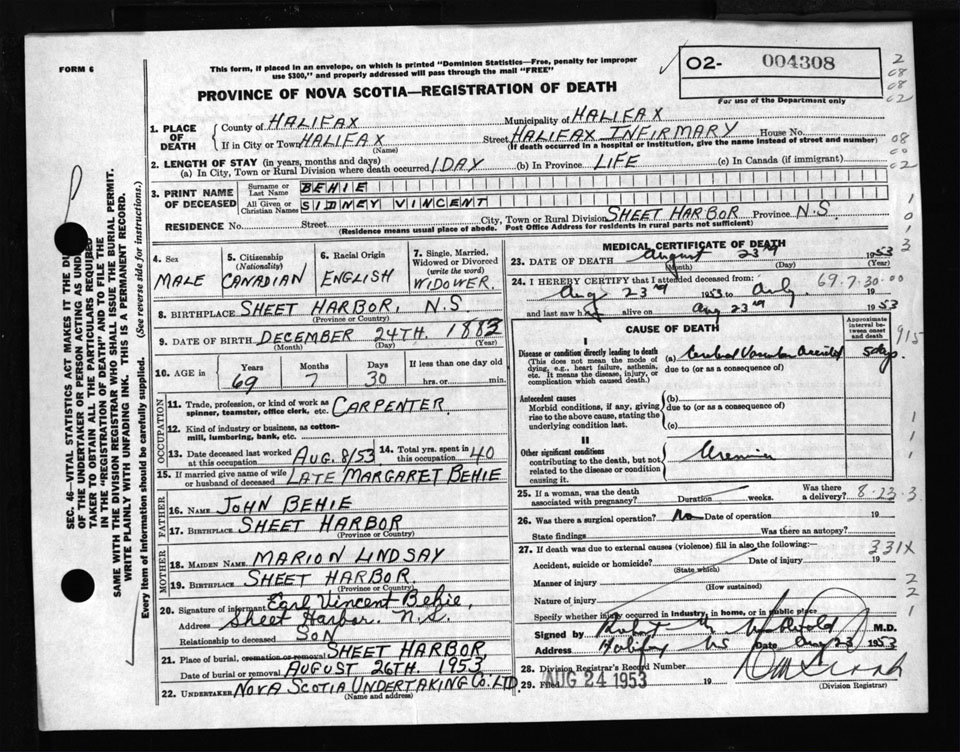 FORM 6
This form, if placed in an envelope, on which is printed "Dominion Statistics—Free, penalty for improper
use $300," and properly addressed will pass through the mail "FREE"
PROVINCE OF NOVA SCOTIA—REGISTRATION OF DEATH
O2- 004308
For use of the Department only
2
08
08
02
SEC. 46—VITAL STATISTICS ACT MAKES IT THE DU
OF THE UNDERTAKER OR PERSON ACTING AS UND
TAKER TO OBTAIN ALL THE PARTICULARS REQUIRED
IN THE "REGISTRATION OF DEATH" AND TO FILE THE
SAME WITH THE DIVISION REGISTRAR WHO SHALL ISSUE THE BURIAL PERMIT.
WRITE PLAINLY WITH UNFADING INK. THIS IS A PERMANENT RECORD.
Every item of information should be carefully supplied. (See reverse side for instructions.)
1. PLACE OF DEATH
County of HALIFAX Municipality of HALIFAX
If in City or Town HALIFAX (Name) Street HALIFAX INFIRMARY House No.
(If death occurred in a hospital or institution, give the name instead of street and number)
2. LENGTH OF STAY (in years, months and days)
(a) In City, Town or Rural Division where death occurred 1 DAY (b) In Province LIFE (c) In Canada (if immigrant)
3. PRINT NAME OF DECEASED
Surname or Last Name BEHIE
All Given or Christian Names SIDNEY VINCENT
RESIDENCE No. Street City, Town or Rural Division SHEET HARBOR Province N.S.
(Residence means usual place of abode. Post Office Address for residents in rural parts not sufficient)
4. Sex MALE
5. Citizenship (Nationality) CANADIAN
6. Racial Origin ENGLISH
7. Single, Married, Widowed or Divorced (write the word) WIDOWER.
8. BIRTHPLACE SHEET HARBOR, N.S.
(Province or Country)
9. DATE OF BIRTH DECEMBER 24TH. 1883
(Month) (Day) (Year)
10. AGE in Years 69 Months 7 Days 30 If less than one day hrs. or min.
OCCUPATION
11. Trade, profession, or kind of work as spinner, teamster, office clerk, etc. CARPENTER.
12. Kind of industry or business, as cotton-mill, lumbering, bank, etc.
13. Date deceased last worked at this occupation AUG. 8/53 14. Total yrs. spent in this occupation 40
15. If married give name of wife or husband of deceased LATE MARGARET BEHIE
FATHER
16. NAME JOHN BEHIE
17. BIRTHPLACE SHEET HARBOR
(Province or Country)
MOTHER
18. MAIDEN NAME MARION LINDSAY
19. BIRTHPLACE SHEET HARBOR.
(Province or Country)
20. Signature of informant Earl Vincent Behie,
Address Sheet Harbor. N.S.
Relationship to deceased SON
21. Place of burial, cremation or removal SHEET HARBOR
Date of burial or removal AUGUST 26TH. 1953
22. UNDERTAKER NOVA SCOTIA UNDERTAKING CO. LTD
(Name and address)
MEDICAL CERTIFICATE OF DEATH
23. DATE OF DEATH August 23rd 1953
(Month) (Day) (Year)
24. I HEREBY CERTIFY that I attended deceased from: 69.7.30.00
Aug 23rd 1953 to 19
and last saw h alive on Aug 23rd 1953
CAUSE OF DEATH
Approximate interval between onset and death
I
Disease or condition directly leading to death
(This does not mean the mode of dying, e.g., heart failure, asthenia, etc. It means the disease, injury, or complication which caused death.)
(a) Cerebral Vascular Accident 5 days
due to (or as a consequence of)
915
Antecedent causes
Morbid conditions, if any, giving rise to the above cause, stating the underlying condition last.
(b)
due to (or as a consequence of)
(c)
II
Other significant conditions
contributing to the death, but not related to the disease or condition causing it.
Uremia
25. If a woman, was the death associated with pregnancy? Duration weeks. Was there a delivery? 8-23-3
26. Was there a surgical operation? No Date of operation 19
State findings Was there an autopsy?
27. If death was due to external causes (violence) fill in also the following: 331X
Accident, suicide or homicide? Date of injury 19
(State which)
Manner of injury
(How sustained)
Nature of injury
Specify whether injury occurred in industry, in home, or in public place
Signed by M.D.
Address Halifax NS Date Aug 23 1953
28. Division Registrar's Record Number
29. Filed AUG 24 1953 19
(Division Registrar)